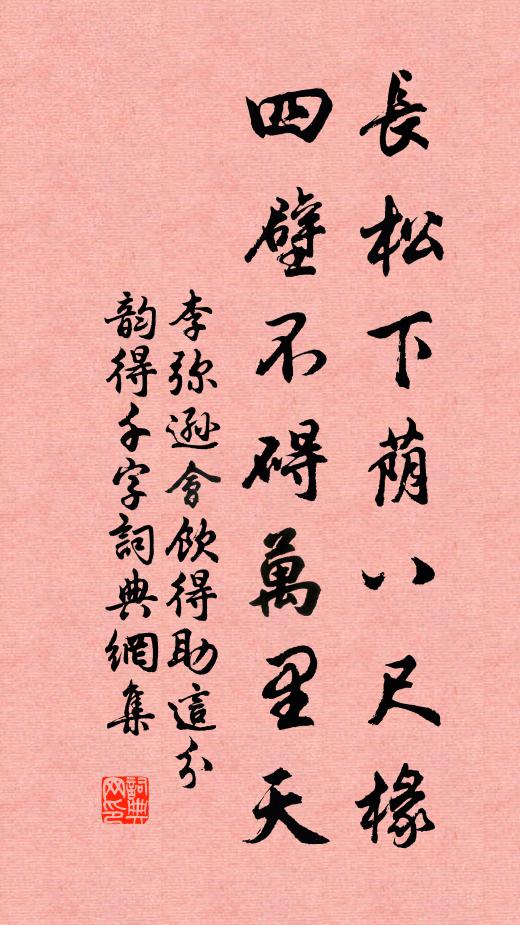 長松下荫八尺椽
四壁不碍萬里天
李弥遜會飲得助這分
韵得千字詞典網集
詞典网印